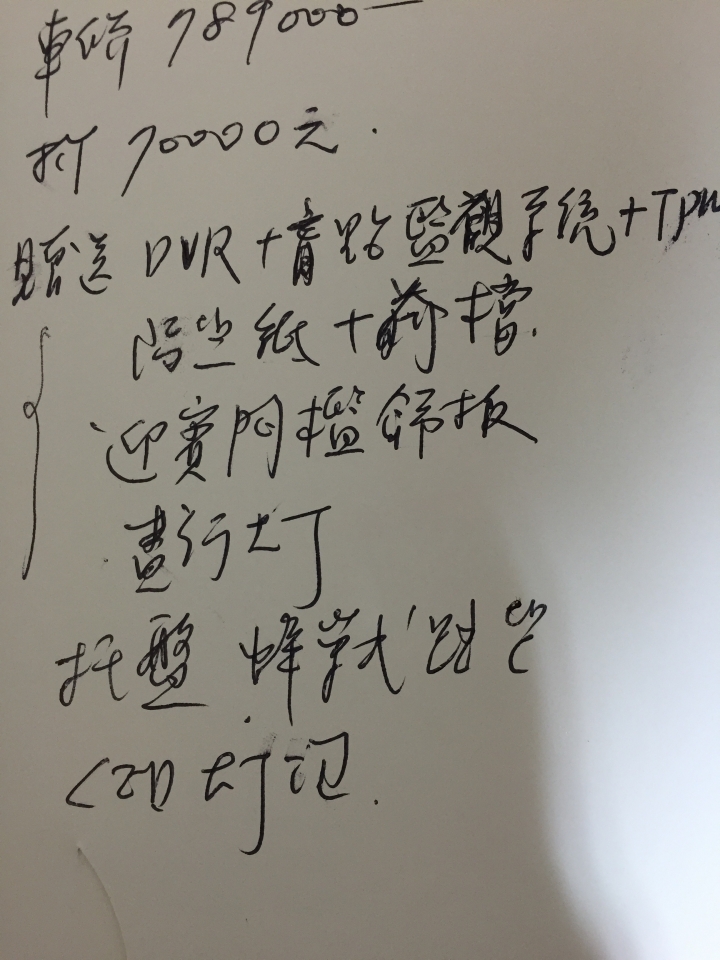 車價 789000
折 70000元.
贈送 DVR+盲點監視系統+TPM
隔熱紙+前檔
迎賓門檻飾板
晝行大灯
托盤 蜂巢式踏墊
LED 大灯泡.